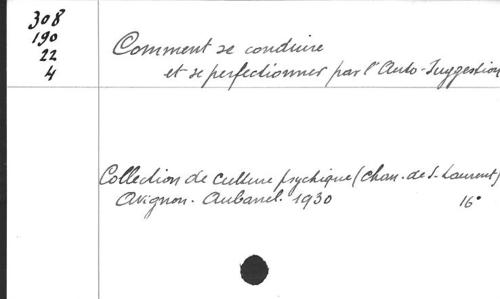 308
190
22
4
Comment se conduire
et se perfectionner par l'Auto-Suggestion
Collection de culture psychique (Chan. de S. Laurent)
Avignon. Aubanel. 1930 16°